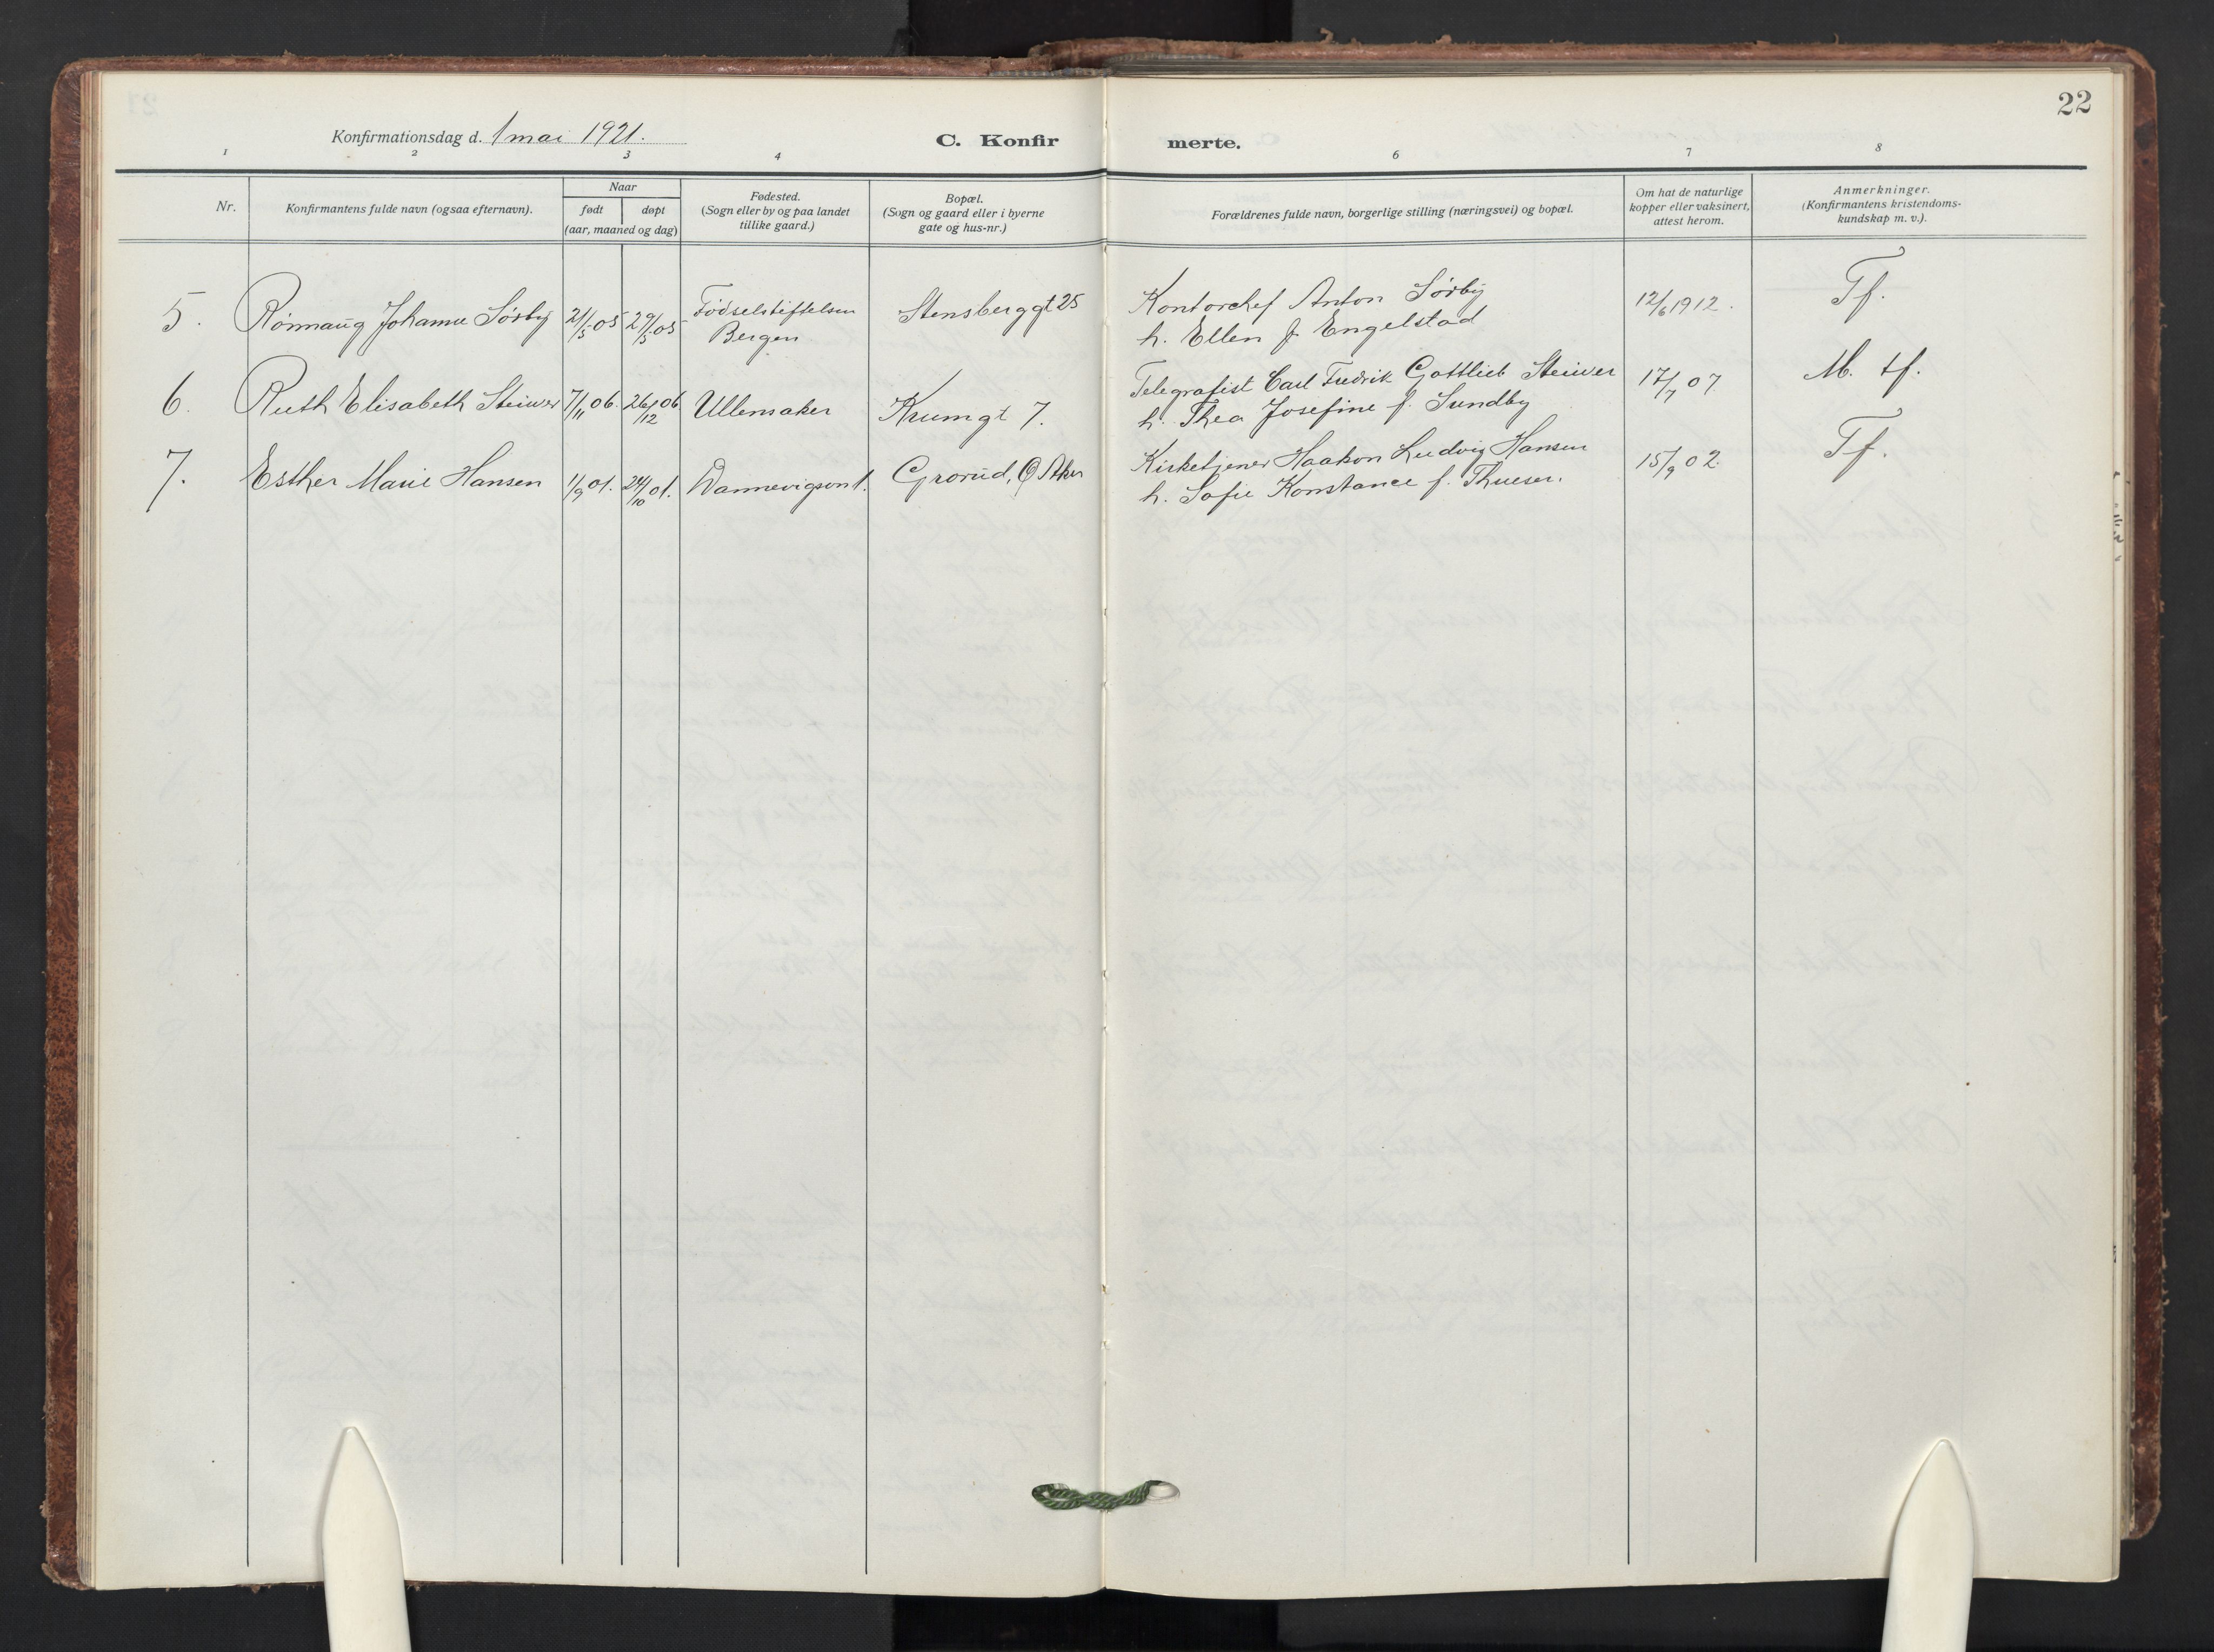 22
Konfirmationsdag d. 1 mai 1921.
C. Konfirmerte.
1 2 3 4 6 7 8
Nr.
Konfirmantens fulde navn (ogsaa efternavn).
Naar
født døpt
(aar, maaned og dag)
Fødested.
(Sogn eller by og paa landet
tillike gaard.)
Bopæl.
(Sogn og gaard eller i byerne
gate og hus-nr.)
Forældrenes fulde navn, borgerlige stilling (næringsvei) og bopæl.
Om hat de naturlige
kopper eller vaksinert,
attest herom.
Anmerkninger.
(Konfirmantens kristendoms-
kundskap m. v.).
5. Rönnaug Johanne Sörby 21/5 05 29/5 05 Födselstiftelsen Stensberggt 25 Kontorchef Anton Sörby 12/6 1912. Tf.
Bergen h. Ellen f. Engelstad
6. Ruth Elisabeth Steiwer 7/11 06. 26/12 06 Ullensaker Krumgt 7. Telegrafist Carl Fredrik Gottlieb Steiwer 17/7 07 M. tf.
h. Thea Josefine f. Sundby
7. Esther Marie Hansen 1/9 01. 24/10 01. Wannevigsvn 1. Grorud, Ø Aker Kirketjener Haakon Ludvig Hansen 15/9 02. Tf.
h. Sofie Konstance f. Thuesen.